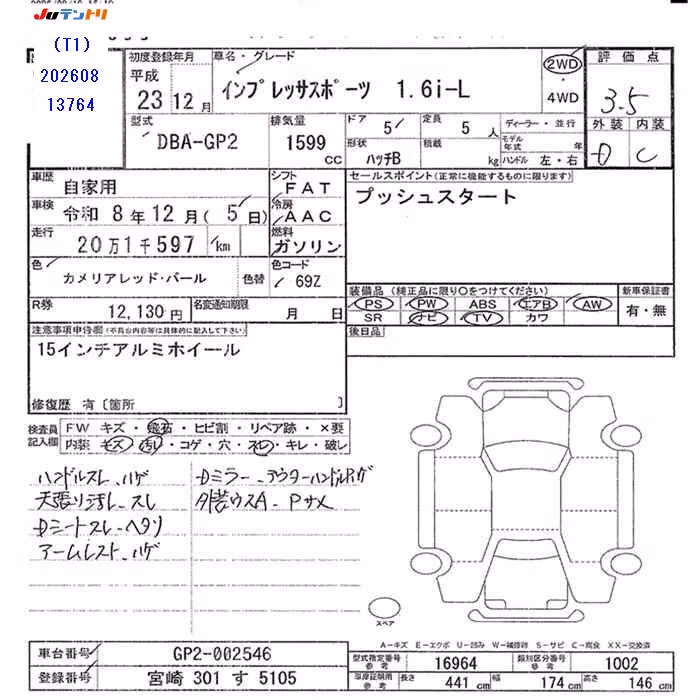 JUテントリ
(T1)
202608
13764
初度登録年月
平成
23 12月
車名・グレード
インプレッサスポーツ 1.6i-L
2WD
・
4WD
評価点
3.5
外装 内装
D C
型式
DBA-GP2
排気量
1599
CC
ドア
5
定員
5 人
ディーラー・並行
形状
ハッチB
積載
kg
モデル年式 年
ハンドル 左・右
車歴
自家用
シフト
FAT
車検
令和 8年12月( 5日)
冷房
AAC
走行
20万1千597 km
燃料
ガソリン
色
カメリアレッド・パール
色替
色コード
69Z
R券
12,130円
名変通知期限
月 日
セールスポイント(正常に機能するものに限ります)
プッシュスタート
装備品(純正品に限り○をつけてください)
PS PW ABS エアB AW
SR ナビ TV カワ
新車保証書
有・無
後日品
注意事項申告欄(不具合内容等は具体的に記入して下さい)
15インチアルミホイール
修復歴 有〔箇所 〕
検査員記入欄
FW キズ・飛石・ヒビ割・リペア跡・×要
内装 キズ・汚れ・コゲ・穴・スレ・キレ・破レ
ハンドルスレ、ハゲ
天張り汚レ、スレ
Dシートスレ・ヘタリ
アームレスト、ハゲ
Dミラー、アウターハンドルハゲ
外装ウスA、Pサメ
スペア
A=キズ E=エクボ U=凹み W=補修跡 S=サビ C=腐食 XX=交換済
車台番号
GP2-002546
登録番号
宮崎 301 す 5105
型式指定番号 参考
16964
類別区分番号 参考
1002
車庫証明用 参考
長さ 441 cm
幅 174 cm
高さ 146 cm